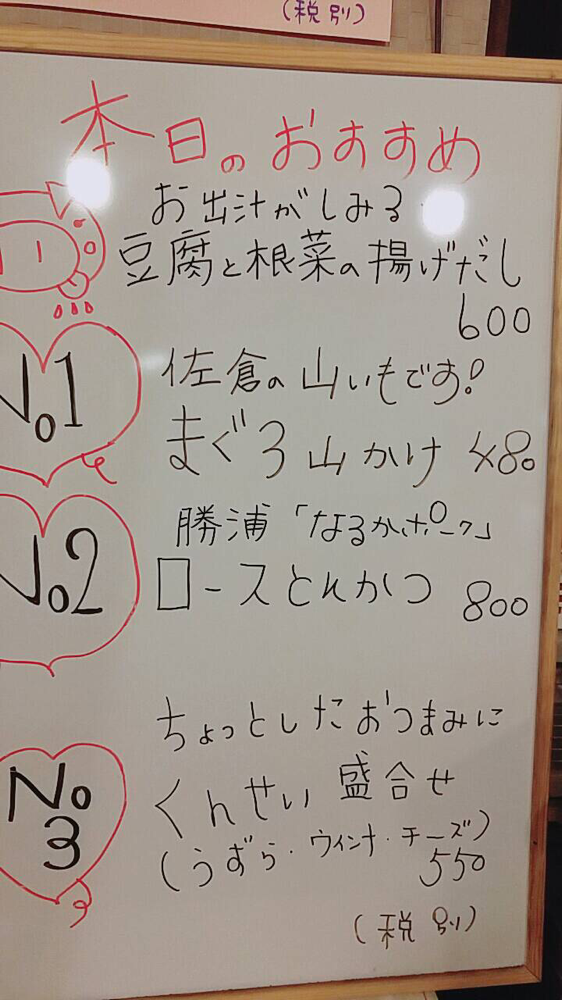 (税別)
本日のおすすめ
お出汁がしみる
豆腐と根菜の揚げだし
600
No1
佐倉の山いもです!
まぐろ山かけ 480
No2
勝浦「なるかポーク」
ロースとんかつ 800
No3
ちょっとしたおつまみに
くんせい 盛合せ
(うずら・ウインナ・チーズ)
550
(税別)